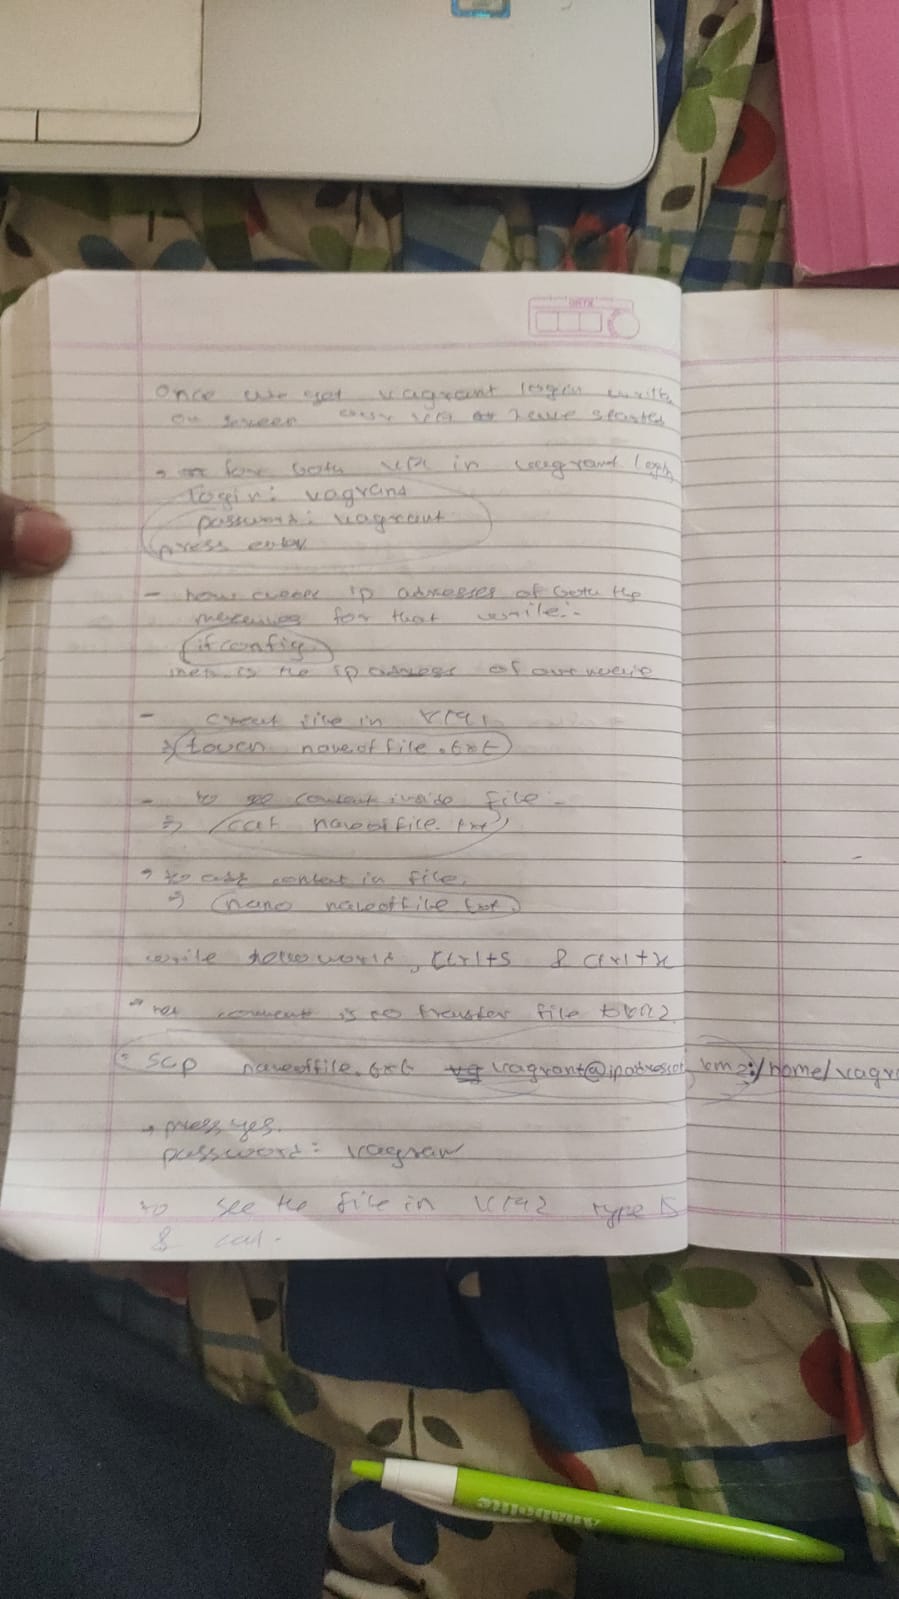 once we get vagrant login written
on screen our VM have started
for both VM in vagrant login
login: vagrant
password: vagrant
press enter
- now check ip adresses of both the
machines for that write:-
ifconfig
inet is the ip address of our machine
- creat file in VM1
⇒ touch nameoffile.txt
- to see content inside file -
⇒ cat nameoffile.txt
to add content in file.
⇒ nano nameoffile.txt
write helloworld, Ctrl+S & Ctrl+x
comment is to transfer file to VM2
scp nameoffile.txt vagrant@ipadressof vm2:/home/vagr
→ press yes.
password: vagran
to see the file in VM2 type ls
& cat.